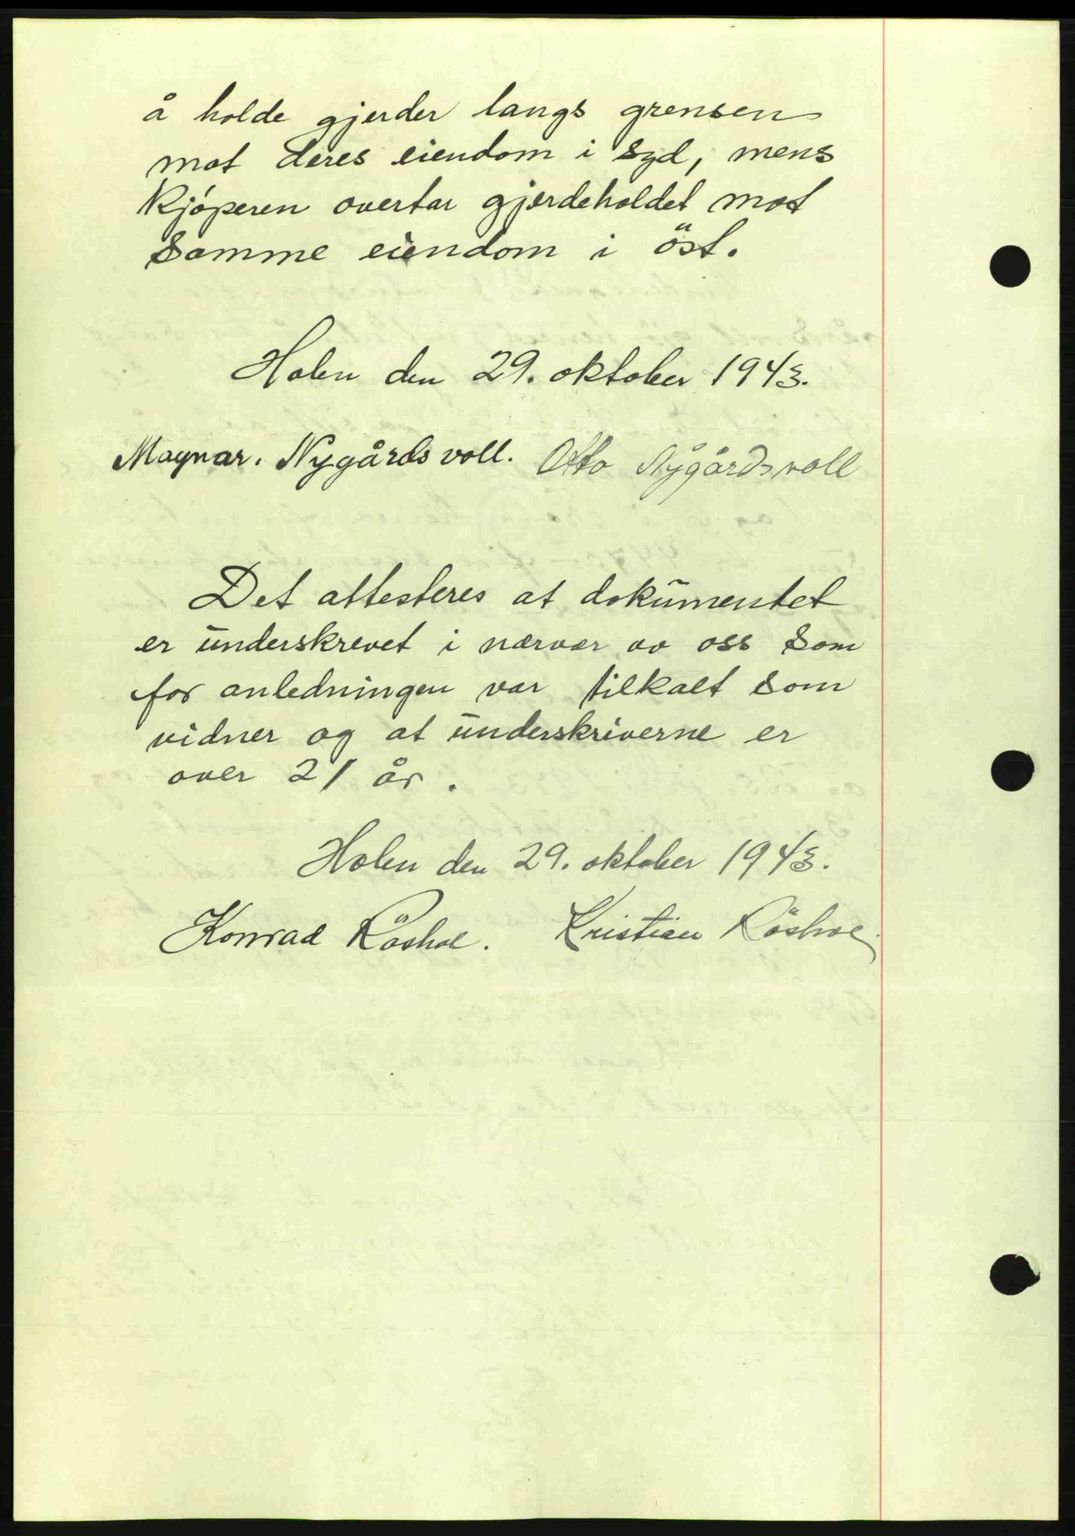 å holde gjerder langs grensen
mot deres eiendom i syd, mens
kjöperen overtar gjerdeholdet mot
samme eiendom i öst.
Holen den 29. oktober 1943.
Magnar. Nygårdsvoll. Otto Nygårdsvoll
Det attesteres at dokūmentet
er ūnderskrevet i nærvær av oss som
for anledningen var tilkalt som
vidner og at ūnderskriverne er
over 21 år.
Holen den 29. oktober 1943.
Konrad Råshol. Kristian Råshol.